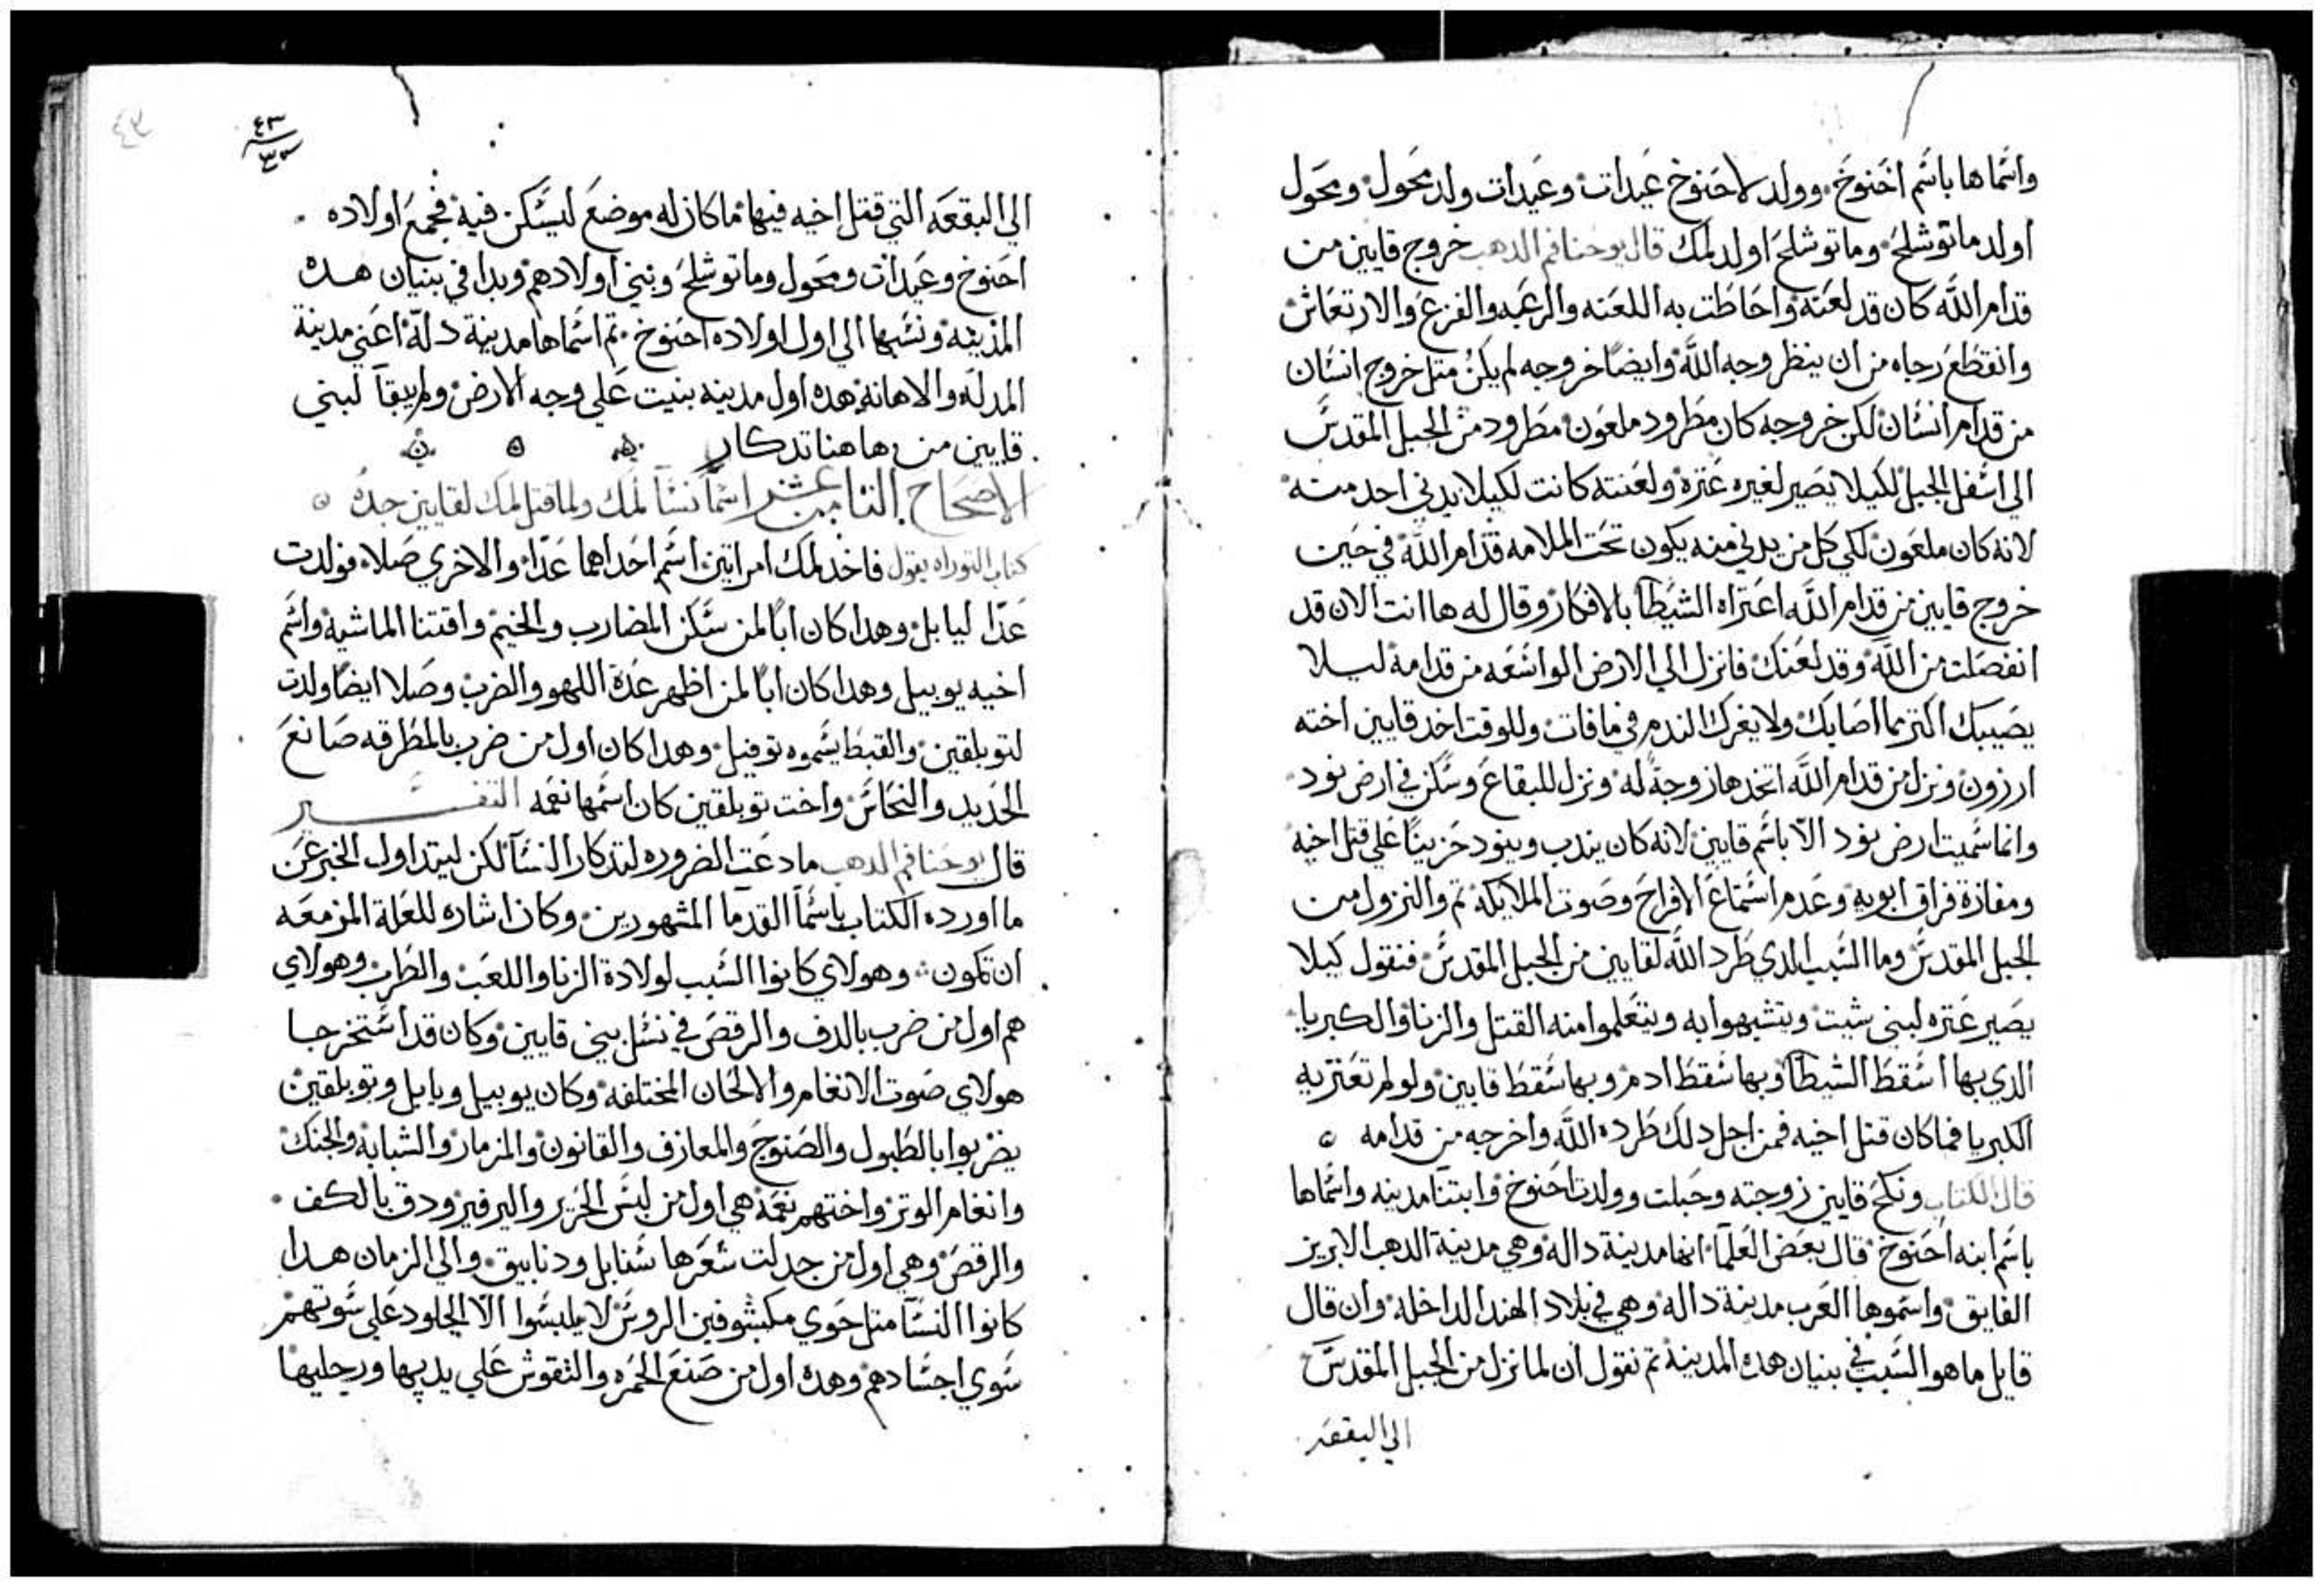 واسماها باسم اخنوخ وولد لاخنوخ عيدات وعيدات ولد محول ومحول
اولد ماتوشلح وماتوشلح اولد لمك قال يوحنا فم الدهب خروج قايين من
قدام الله كان قد لعنه واحاطت به اللعنه والرعبه والفزع والارتعاش
وانقطع رجاه من ان ينظر وجه الله وايضا خروجه لم يكن متل خروج انسان
من قدام انسان لكن خروجه كان مطرود ملعون مطرود من الجبل المقدس
الي اسفل الجبل لكيلا يصير لغيره عتره ولعنته كانت لكيلا يدني احد منه
لانه كان ملعون لكي كل من يدني منه يكون تحت الملامه قدام الله في حين
خروج قايين من قدام الله اعتراه الشيطا بالافكار وقال له ها انت الان قد
انفصلت من الله وقد لعنك فانزل الي الارض الواسعه من قدامه ليلا
يصيبك اكتر مما اصابك ولا يغرك الندم في ما فات وللوقت اخد قايين اخته
ارزون ونزل من قدام الله اتخدها زوجة له ونزل للبقاع وسكن في ارض نود
وانما سميت ارض نود الا باسم قايين لانه كان يندب وينود حزينا علي قتل اخيه
ومفازة فراق ابويه وعدم استماع الافراح وصوت الملايكه تم والنزول من
الجبل المقدس وما السبب الدي طرد الله لقايين من الجبل المقدس فنقول كيلا
يصير عتره لبني شيت ويتشبهوا به ويتعلموا منه القتل والزنا والكبريا
الدي بها اسقط الشيطا وبها سقط ادم وبها سقط قايين ولولم تعتريه
الكبريا فما كان قتل اخيه فمن اجل دلك طرده الله واخرجه من قدامه ۞
قال الكتاب ونكح قايين زوجته وحبلت وولدت احنوخ وابتنا مدينه واسماها
باسم ابنه احنوخ قال بعض العلما انها مدينة داله وهي مدينة الدهب الابريز
الفايق واسموها العرب مدينة داله وهي في بلاد الهند الداخله وان قال
قايل ما هو السبب في بنيان هده المدينة تم نقول ان لما نزل من الجبل المقدس
الي البقعه
٤٣
٤٣
الي البقعه التي قتل اخيه فيها ما كان له موضع ليسكن فيه فجمع اولاده
احنوخ وعيدات ومحول وماتوشلح وبني اولادهم وبدا في بنيان هده
المدينه ونسبها الي اول اولاده احنوخ تم اسماها مدينة دلة اعني مدينة
المدله والاهانة هده اول مدينه بنيت علي وجه الارض ولم يبقا لبني
قايين من هاهنا تدكار
الاصحاح التامن عشر اسما نسا لمك ولما قتل لمك لقايين جده ۞
كتاب التوراه يقول فاخد لمك امراتين اسم احداهما عدا والاخري صلا فولدت
عدا ليابل وهدا كان ابا لمن سكن المضارب والخيم واقتنا الماشية واسم
اخيه يوبيل وهدا كان ابا لمن اظهر عدة اللهو والضرب وصلا ايضا ولدت
لتوبلقين والقبط يسموه توفيل وهدا كان اول من ضرب بالمطرقه صانع
الحديد والنحاس واخت توبلقين كان اسمها نعمه التفسير
قال يوحنا فم الدهب ما دعت الضروره لتدكار النسا لكن ليتداول الخبر عن
ما اورده الكتاب باسما القدما المشهورين وكان اشاره للعلة المزمعه
ان تكون وهولاي كانوا السبب لولادة الزنا واللعب والطرب وهولاي
هم اول من ضرب بالدف والرقص في نسل بيني قايين وكان قد استخرجا
هولاي صوت الانغام والالحان المختلفه وكان يوبيل ويابل وتوبلقين
يضربوا بالطبول والصنوج والمعازف والقانون والمزمار والشبابه والجنك
وانغام الوتر واختهم نعمة هي اول من لبس الحرير والبرفير ودق بالكف
والرقص وهي اول من جدلت شعرها سنابل ودنابيق والي الزمان هدا
كانوا النسا متل حوي مكشوفين الروس لا يلبسوا الا الجلود علي سوتهم
سوي اجسادهم وهده اول من صنع الحمره والنقوش علي يديها ورجليها